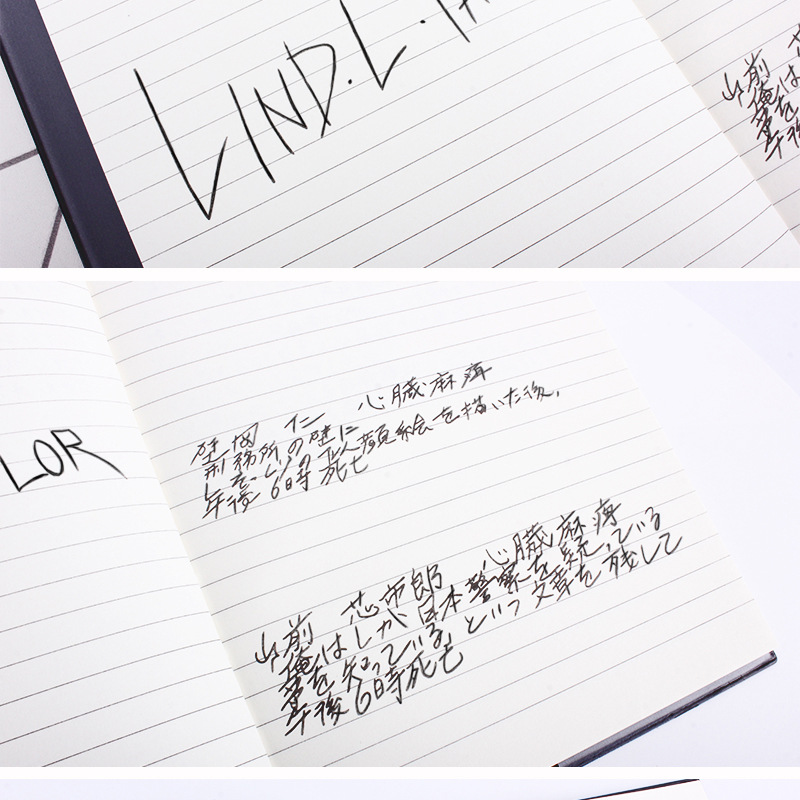 LIND.L.TA
山前
俺は
LOR
心臓麻痺
刑務所の壁に
顔絵を描いた後、
午後6時死亡
山前 芯市郎 心臓麻痺
俺はLが日本警察を疑っている
事を知っている。という文章を残して
午後6時死亡